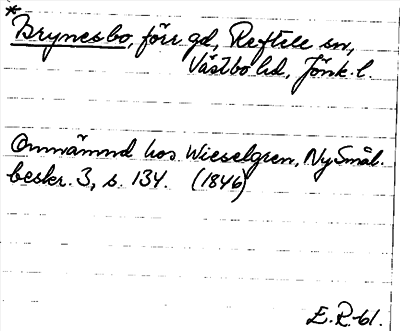 *
Brynesbo, förr gd, Reftele sn,
Västbo hd, Jönk. l.
Omnämnd hos Wieselgren, Ny Smål.
beskr. 3, s. 134. (1846)
E. R-bl.